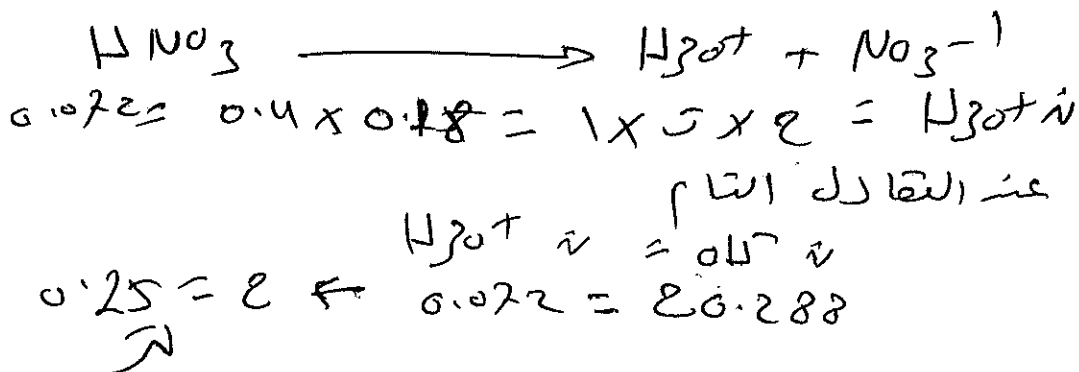 HNO3 → H3O+ + NO3-1
0.072 = 0.4 × 0.18 = 1 × ت × ح = H3O+ ن
عند التعادل التام
H3O+ ن = OH- ن
0.25 = ح ← 0.072 = ح 0.288
لتر